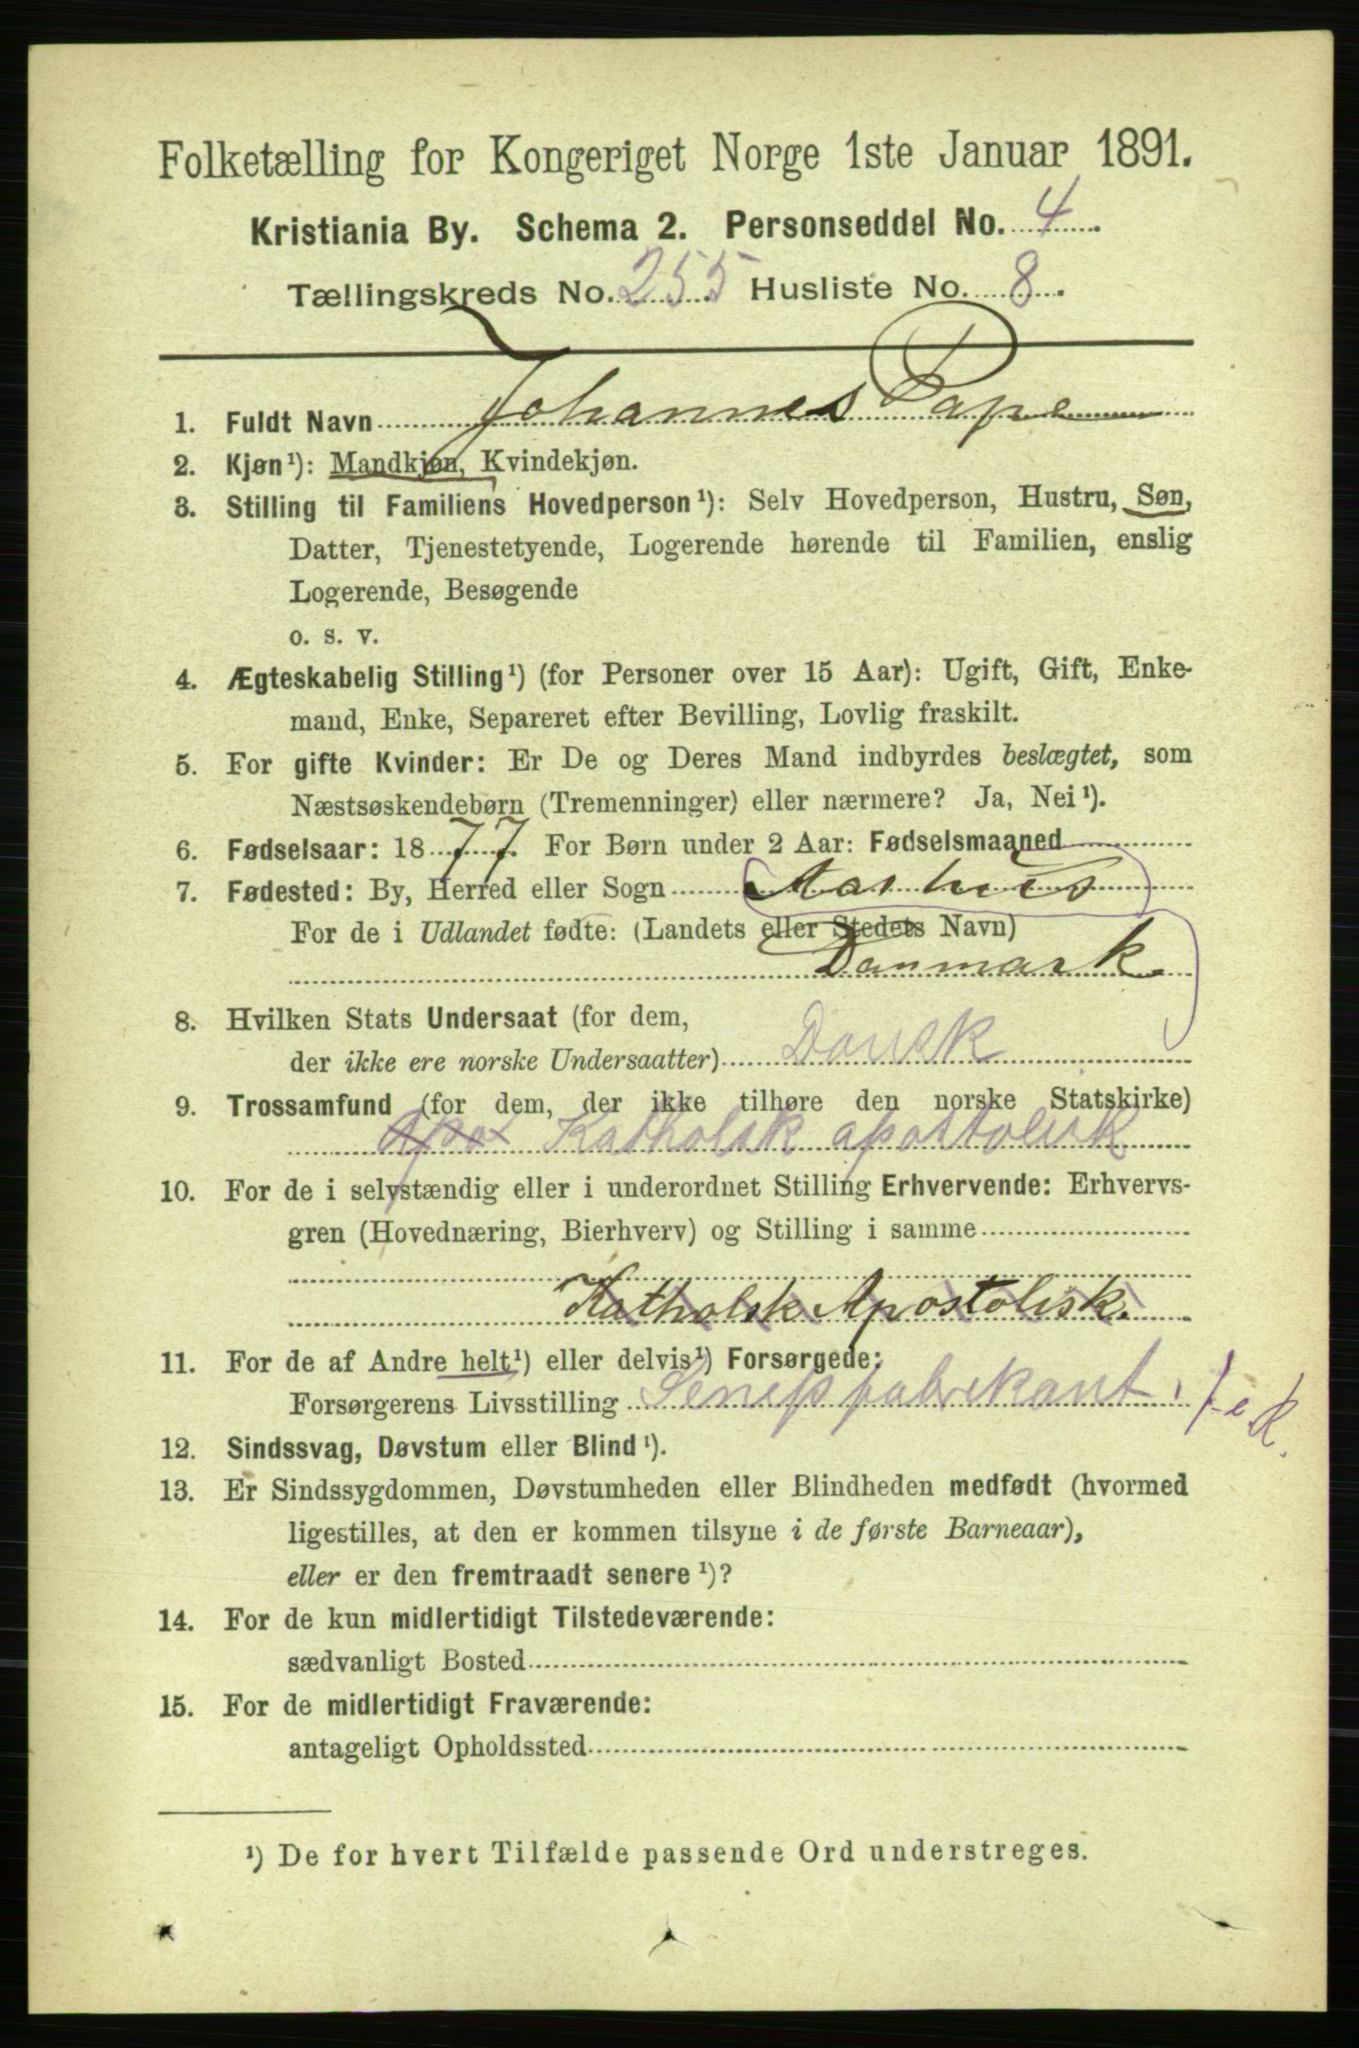 Folketælling for Kongeriget Norge 1ste Januar 1891.
Kristiania By. Schema 2. Personseddel No. 4.
Tællingskreds No. 255 Husliste No. 8.
1. Fuldt Navn Johannes Pape
2. Kjøn¹): Mandkjøn, Kvindekjøn.
3. Stilling til Familiens Hovedperson¹): Selv Hovedperson, Hustru, Søn,
Datter, Tjenestetyende, Logerende hørende til Familien, enslig
Logerende, Besøgende
o. s. v.
4. Ægteskabelig Stilling¹) (for Personer over 15 Aar): Ugift, Gift, Enke-
mand, Enke, Separeret efter Bevilling, Lovlig fraskilt.
5. For gifte Kvinder: Er De og Deres Mand indbyrdes beslægtet, som
Næstsøskendebørn (Tremenninger) eller nærmere? Ja, Nei¹).
6. Fødselsaar: 1877. For Børn under 2 Aar: Fødselsmaaned
7. Fødested: By, Herred eller Sogn Aarhus
For de i Udlandet fødte: (Landets eller Stedets Navn)
Danmark.
8. Hvilken Stats Undersaat (for dem,
der ikke ere norske Undersaatter) Dansk
9. Trossamfund (for dem, der ikke tilhøre den norske Statskirke)
Apo Katholsk apostolisk
10. For de i selvstændig eller i underordnet Stilling Erhvervende: Erhvervs-
gren (Hovednæring, Bierhverv) og Stilling i samme
Katholsk Apostolisk.
11. For de af Andre helt¹) eller delvis¹) Forsørgede:
Forsørgerens Livsstilling Senepfabrikant.
12. Sindssvag, Døvstum eller Blind¹).
13. Er Sindssygdommen, Døvstumheden eller Blindheden medfødt (hvormed
ligestilles, at den er kommen tilsyne i de første Barneaar),
eller er den fremtraadt senere¹)?
14. For de kun midlertidigt Tilstedeværende:
sædvanligt Bosted
15. For de midlertidigt Fraværende:
antageligt Opholdssted
¹) De for hvert Tilfælde passende Ord understreges.